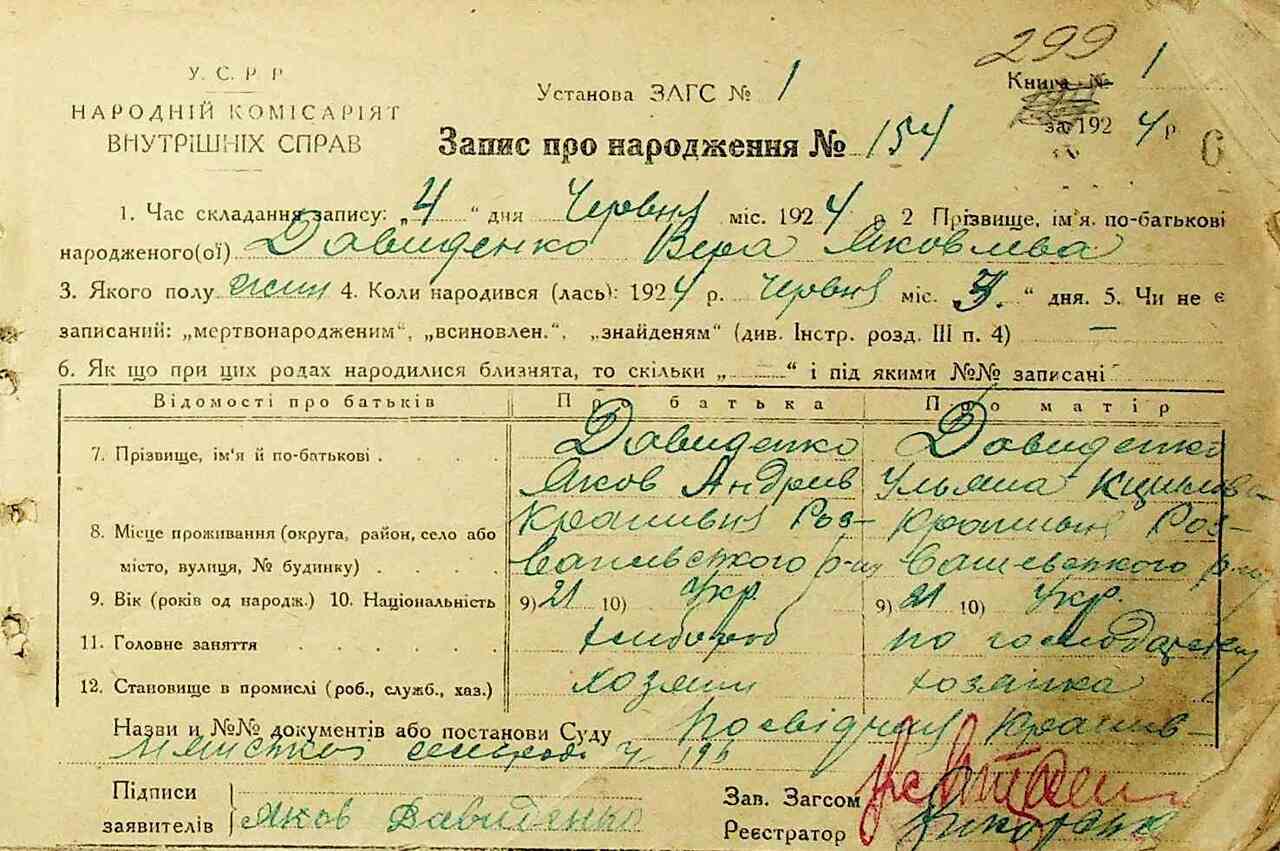 299
У. С. Р Р
НАРОДНІЙ КОМІСАРІЯТ
ВНУТРІШНІХ СПРАВ
Установа ЗАГС № 1
Книга № 1
за 1924 р.
6
Запис про народження № 154
1. Час складання запису: „4“ дня Червня міс. 1924 р 2 Прізвище, ім'я. по-батькові
народженого(ої) Давиденко Вера Яковлева
3. Якого полу жин 4. Коли народився (лась): 1924 р. червня міс. 3. “ дня. 5. Чи не є
записаний: „мертвонародженим“, „всиновлен.“, „знайденям“ (див. Інстр. розд. III п. 4) —
6. Як що при цих родах народилися близнята, то скільки „ “ і під якими №№ записані
Відомості про батьків Про батька Про матір
7. Прізвище, ім'я й по-батькові Давиденко Давиденко
Яков Андрив Ульяна
8. Місце проживання (округа, район, село або Крапивня Роз- Крапивня Роз-
місто, вулиця, № будинку) важевського р-ну важевского р-ну
9. Вік (років од народж.) 10. Національність 9) 21 10) Укр. 9) 21 10) Укр.
11. Головне заняття хлибороб по господарству
12. Становище в промислі (роб., служб., хаз.) хозяин хозяйка
Назви и №№ документів або постанови Суду Посвідчення Крапив-
Підписи
заявителів Яков Давиденко
Зав. Загсом
Реєстратор